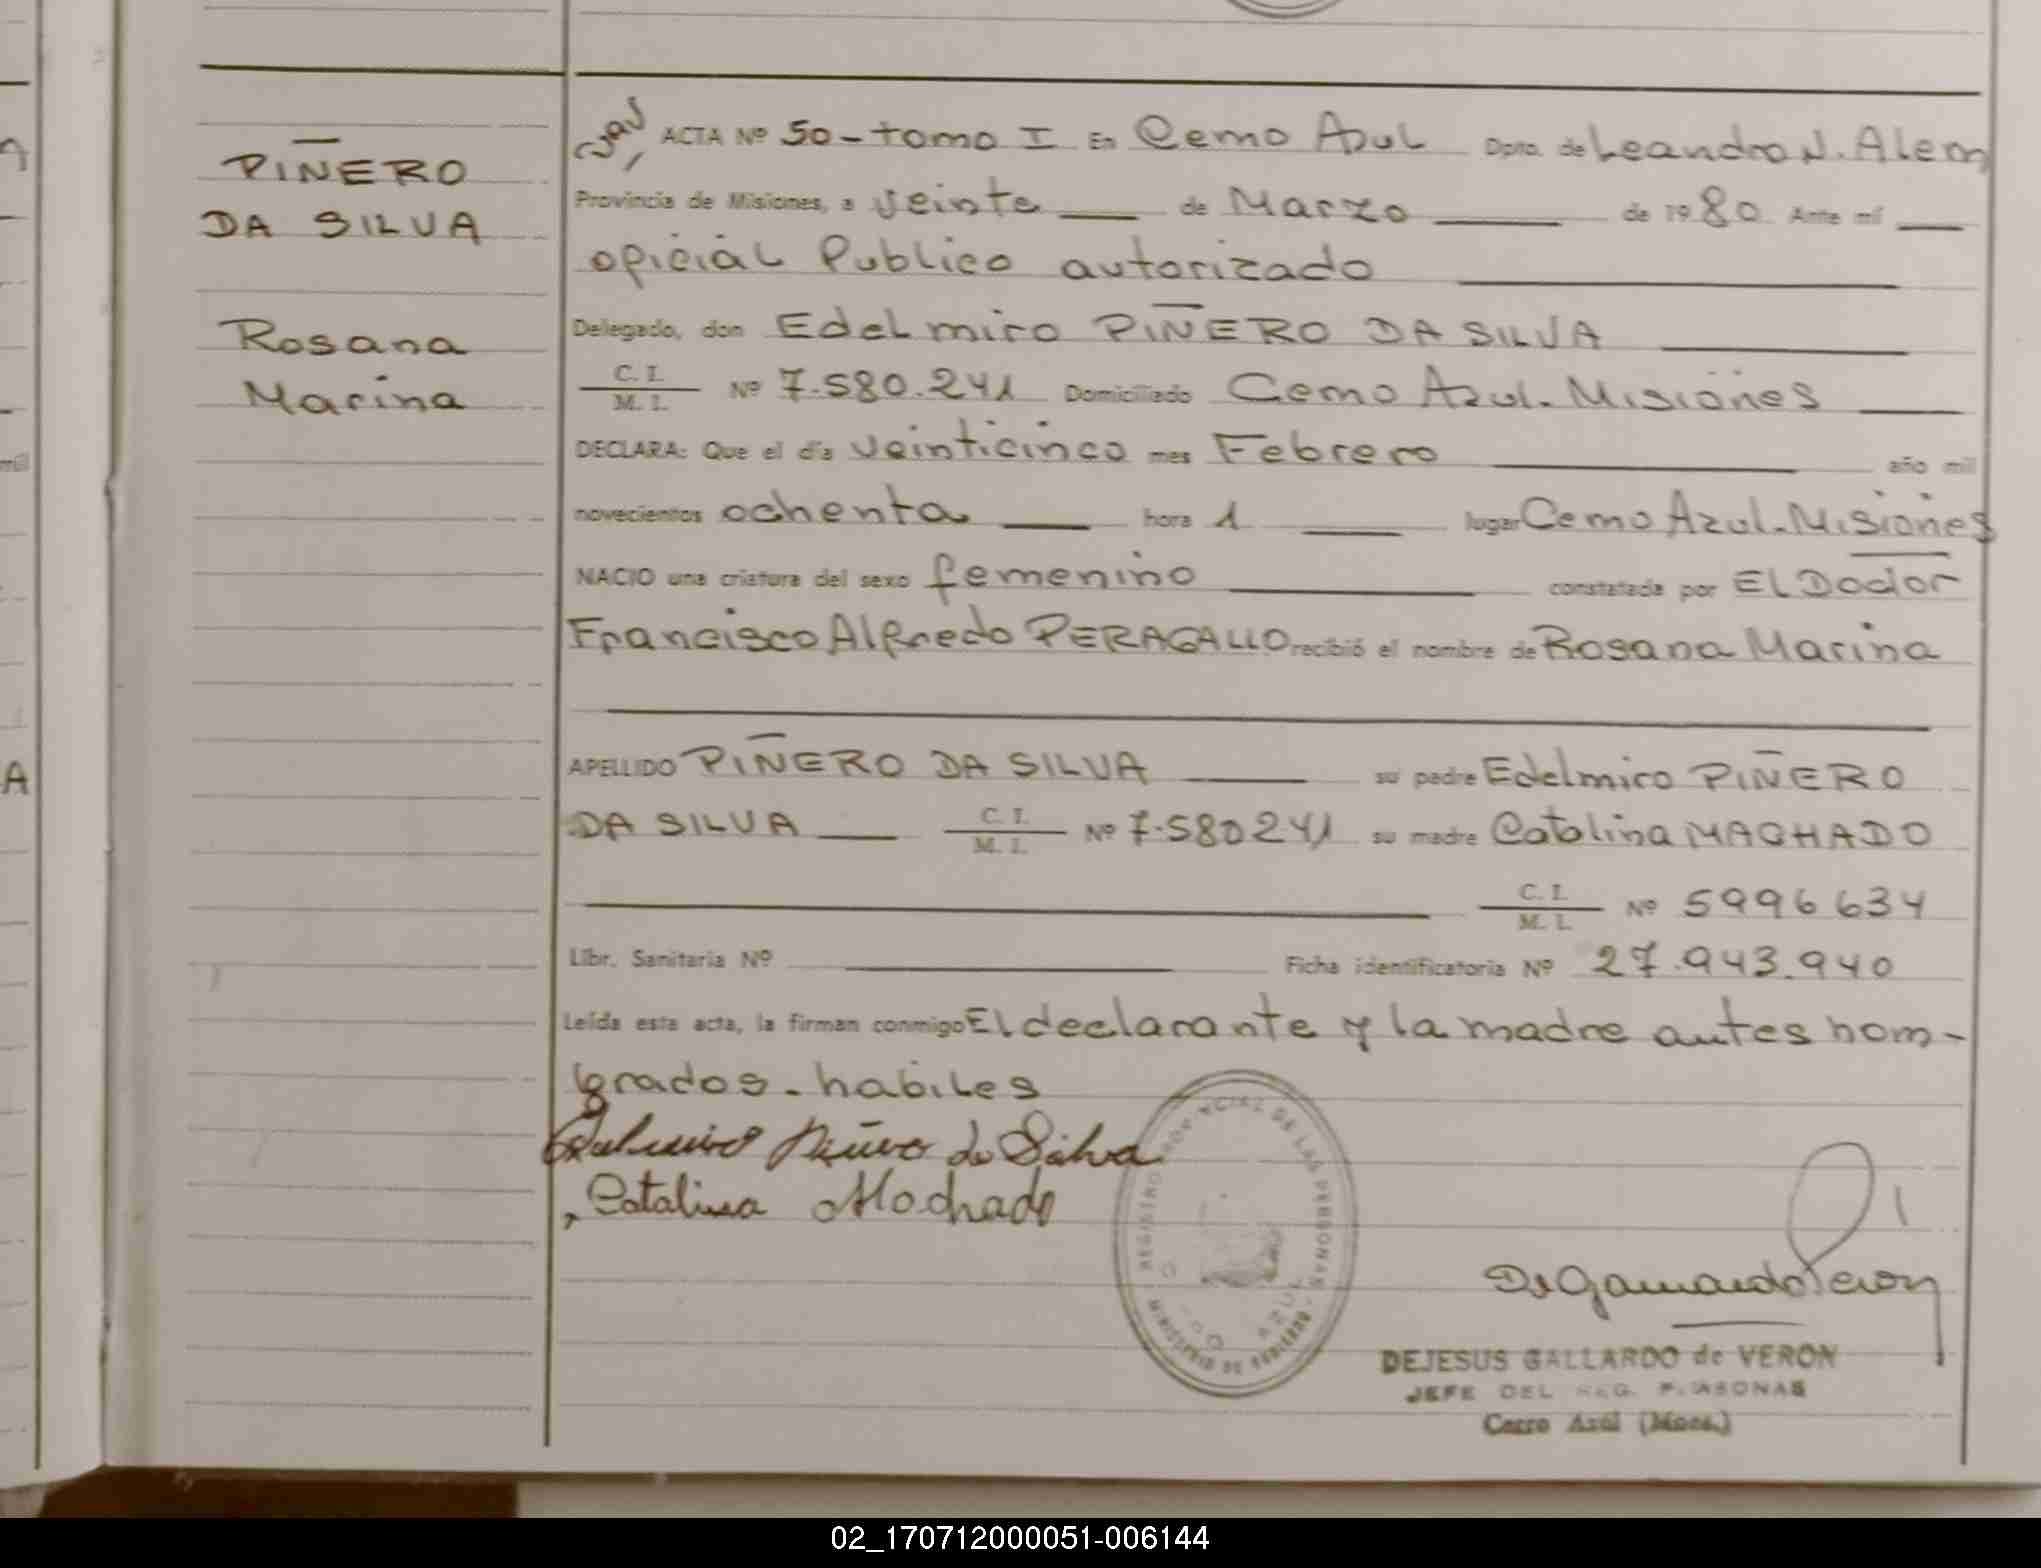 PIÑERO
DA SILVA
Rosana
Marina
ACTA Nº 50 - tomo I En Cerro Azul Dpto. de Leandro N. Alem
Provincia de Misiones, a veinte de Marzo de 1980 Ante mí
oficial Publico autorizado
Delegado, don Edelmiro PIÑERO DA SILVA
C. I. / M. I. Nº 7.580.241 Domiciliado Cerro Azul. Misiones
DECLARA: Que el día veinticinco mes Febrero año mil
novecientos ochenta hora 1 lugar Cerro Azul. Misiones
NACIO una criatura del sexo femenino constatada por El Doctor
Francisco Alfredo PERAGALLO recibió el nombre de Rosana Marina
APELLIDO PIÑERO DA SILVA su padre Edelmiro PIÑERO
DA SILVA C. I. / M. I. Nº 7.580241 su madre Catalina MACHADO
C. I. / M. I. Nº 5996634
Libr. Sanitaria Nº Ficha identificatoria Nº 27.943.940
Leída esta acta, la firman conmigo El declarante y la madre antes nom-
brados. habiles
Edelmiro Piñero da Silva
Catalina Machado
REGISTRO PROVINCIAL DE LAS PERSONAS
DEJESUS GALLARDO de VERON
JEFE DEL REG. PERSONAS
Cerro Azúl (Mnes.)
02_170712000051-006144